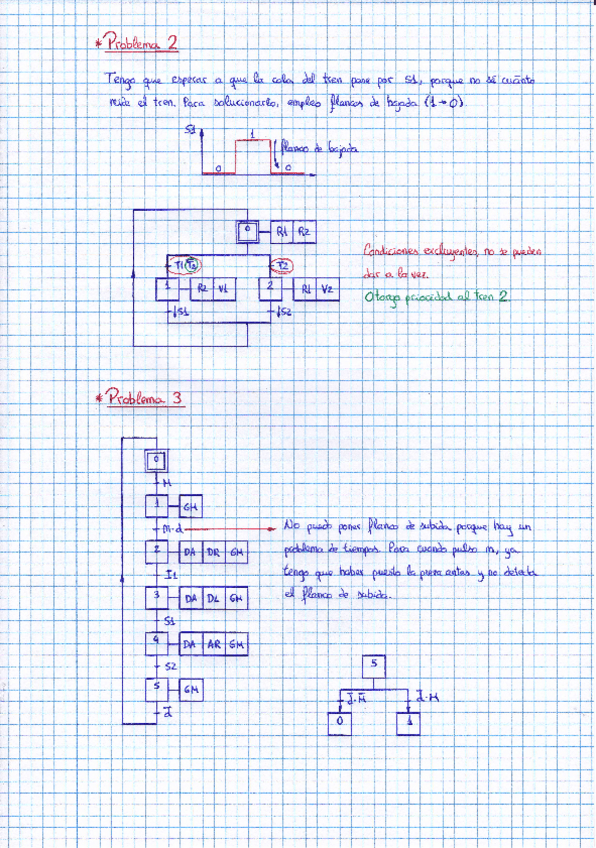 * Problema 2
Tengo que esperar a que la cola del tren pase por S1, porque no sé cuánto
mide el tren. Para solucionarlo, empleo flancos de bajada (1→0)
S1
1
flanco de bajada
0
0
0 R1 R2
T1(T̄2) T2
Condiciones excluyentes, no se pueden
dar a la vez.
Otorgo prioridad al tren 2
1 R2 V1 2 R1 V2
↓S1 ↓S2
* Problema 3
0
M
1 GM
m·d
No puedo poner flanco de subida porque hay un
problema de tiempos. Para cuando pulso m, ya
tengo que haber puesto la pieza antes y no detecta
el flanco de subida.
2 DA DR GM
I1
3 DA DL GM
S1
4 DA AR GM
S2
5 GM
d̄
5
d̄·M̄ d̄·M
0 1